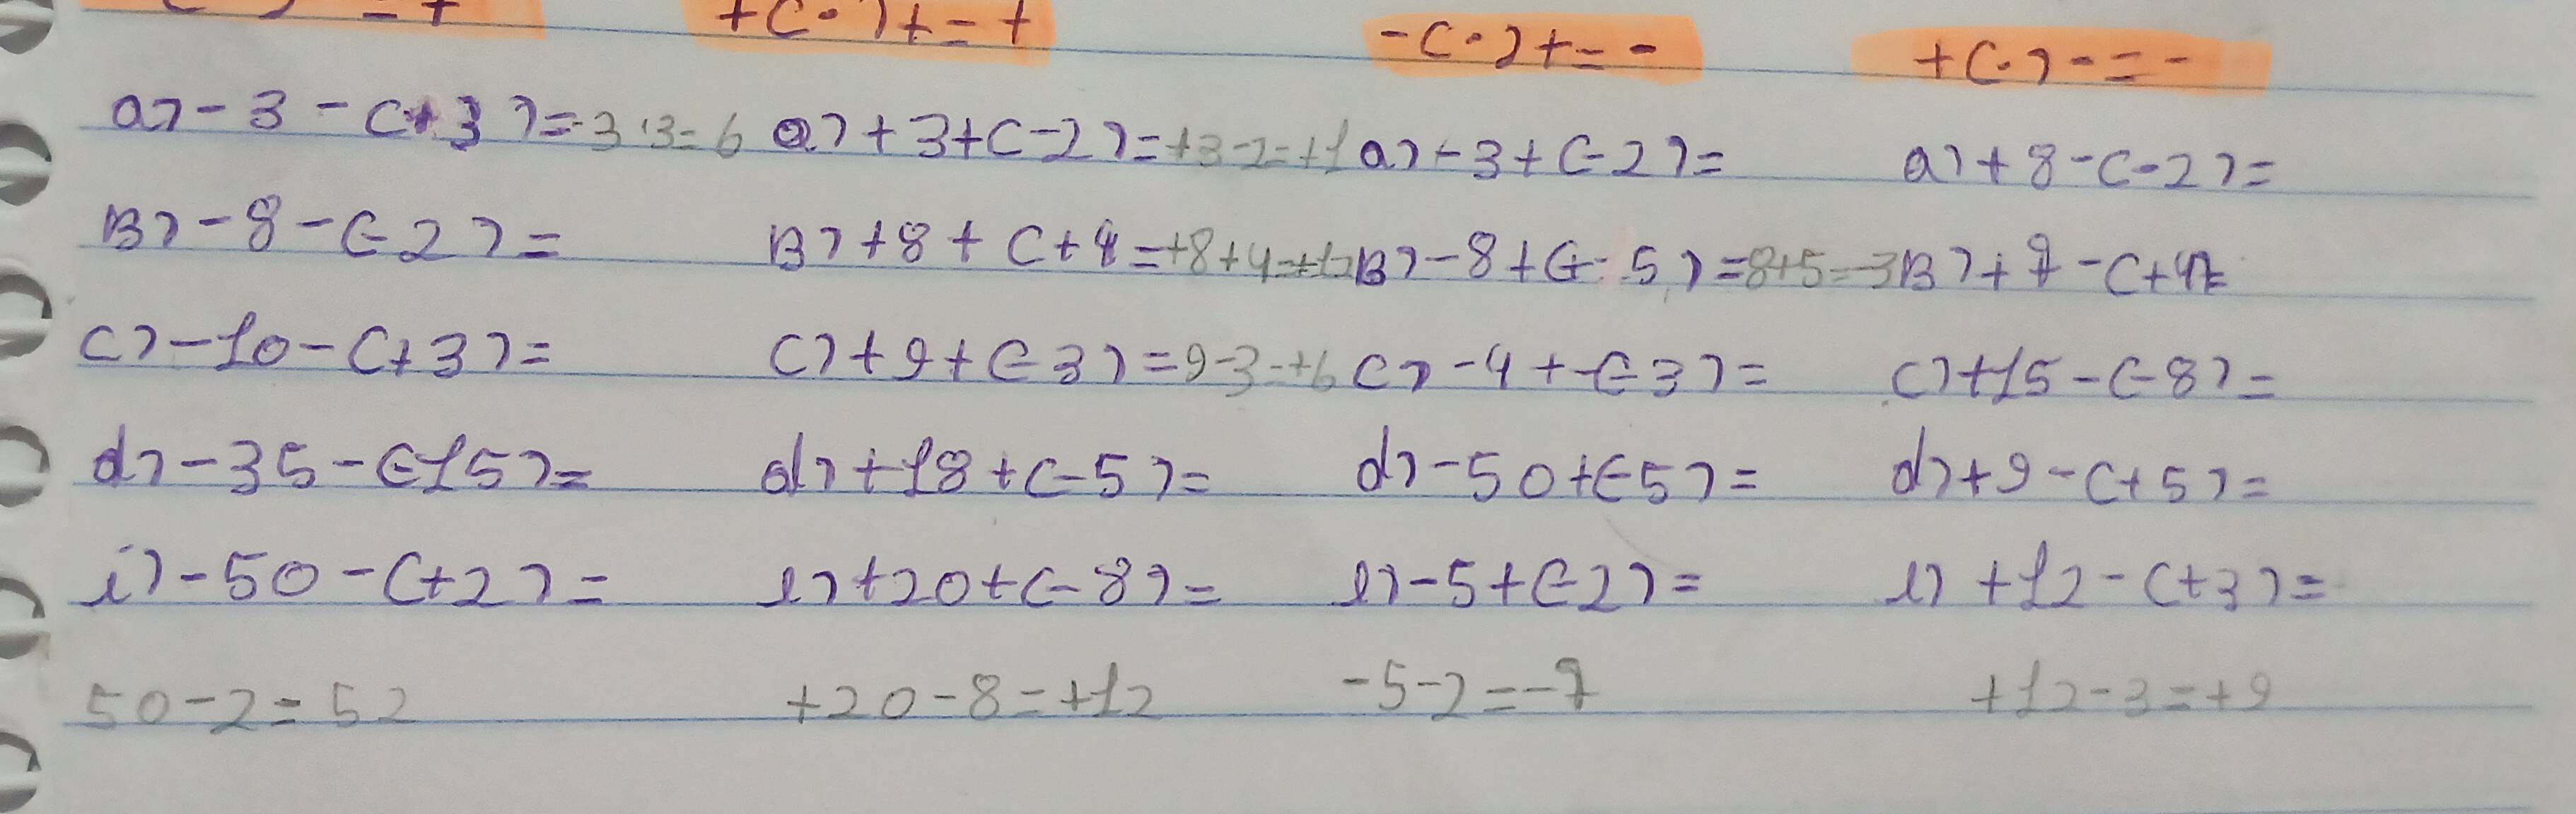 = + +(·)+=+ -(·)+=- +(·)-=-
a) -3-(+3)=-3·3=6 a) +3+(-2)=+3-2=+1 a) -3+(-2)= a) +8-(-2)=
B) -8-(-2)= B) +8+(+4=+8+4=+12 B) -8+(-5)=8+5=-3 B) +7-(+4)=
c) -10-(+3)= c) +9+(-3)=9-3=+6 c) -4+(-3)= c) +15-(-8)=
d) -35-(-15)= d) +18+(-5)= d) -50+(-5)= d) +9-(+5)=
i) -50-(+2)= e) +20+(-8)= e) -5+(-2)= e) +12-(+3)=
50-2=52 +20-8=+12 -5-2=-7 +12-3=+9